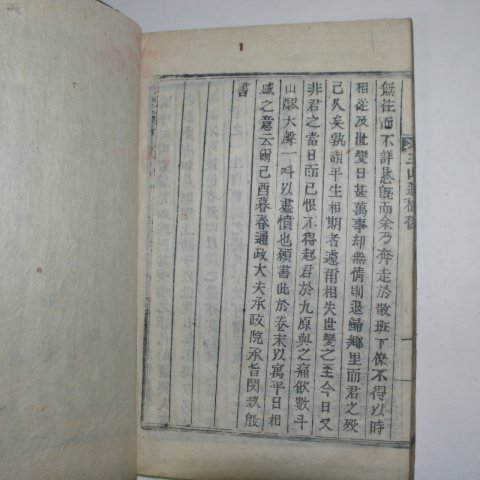 無往而不詳悉旣而余乃奔走於散班下僚不得以時
相從及世變日甚萬事却無情則退歸鄕里而君之歿
已久矣孰謂平生相期者遠爾相失世變之至今日又
非君之當日而已恨不得起君於九原與之痛飮數斗
山醪大聲一叫以盡憤也願書此於卷末以寓平日相
感之意云爾己酉暮春通政大夫承政院承旨閔玖殷
書